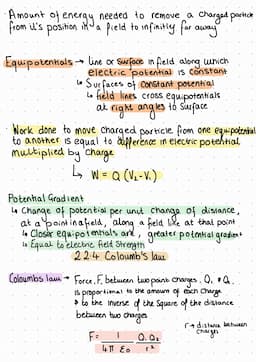 Amount of energy needed to remove a charged particle
from it's position in a field to infinitly far away
Equipotentials → Line or surface in field along which
electric potential is constant
↳ Surfaces of constant potential
↳ field lines cross equipotentials
at right angles to surface
• Work done to move charged particle from one equipotential
to another is equal to difference in electric potential
multiplied by charge
↳ W = Q (V₂-V₁)
Potential Gradient
↳ Change of potential per unit change of distance,
at a point in a field, along a field line at that point
↳ Closer equipotentials are, greater potential gradient
↳ Equal to electric field strength
2.2.4 Coloumb's law
Coloumbs law → Force, F, between two point charges, Q₁ & Q₂
is proportional to the amount of each charge
& to the inverse of the square of the distance
between two charges
r → distance between
charges
F = 1 Q₁ Q₂
4π ε₀ r²